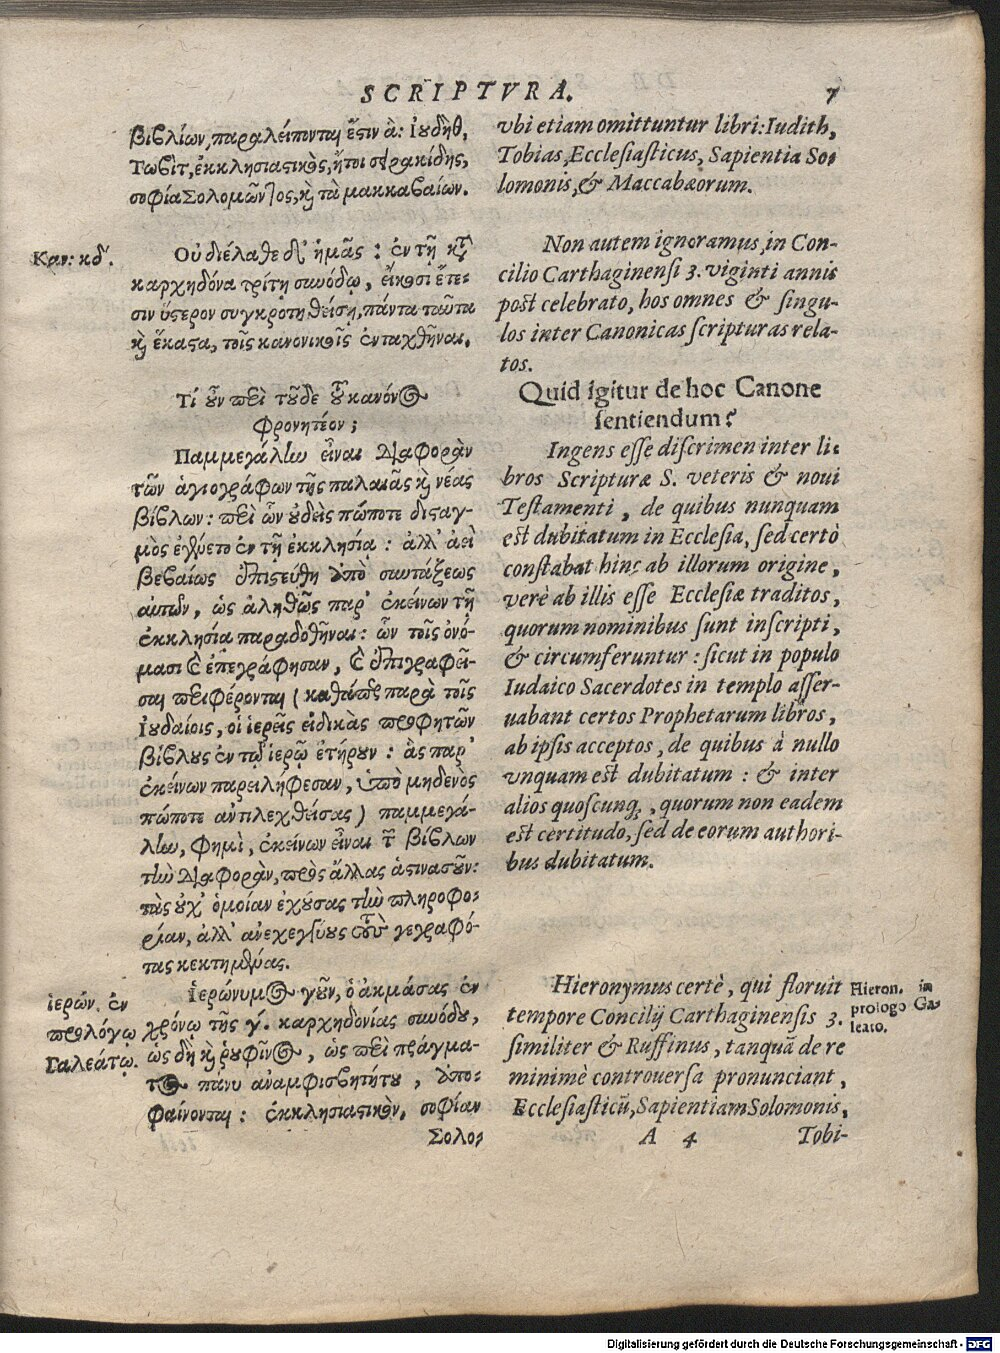 SCRIPTVRA.
7
βιβλίων, παραλείπονται ἔςιν ἃ: Ἰουδὴθ,
Τωβὶτ, ἐκκλησιαςικὸς, ἤτοι σιρακίδης,
σοφία Σολομῶντος, καὶ τὰ μακκαβαίων.
Καν: κδ.
Οὐ διέλαθε δὲ ἡμᾶς: ἐν τῇ κατὰ
καρχηδόνα τρίτῃ συνόδῳ, εἴκοσι ἔτε-
σιν ὕςερον συγκροτηθείσῃ, πάντα ταῦτα
καὶ ἕκαςα, τοῖς κανονικοῖς ἐνταχθῆναι.
Τί οὖν περὶ τοῦδε τοῦ κανόνος
φρονητέον;
Παμμεγάλην εἶναι διαφορὰν
τῶν ἁγιογράφων τῆς παλαιᾶς καὶ νέας
βίβλων: περὶ ὧν οὐδεὶς πώποτε διςαγ-
μὸς ἐγένετο ἐν τῇ ἐκκλησίᾳ: ἀλλ' ἀεὶ
βεβαίως ἐπιςεύθη ἀπὸ συντάξεως
αὐτῶν, ὡς ἀληθῶς παρ' ἐκείνων τῇ
ἐκκλησίᾳ παραδοθῆναι: ὧν τοῖς ὀνό-
μασι καὶ ἐπεγράφησαν, καὶ ἐπιγραφεῖ-
σαι περιφέρονται (καθάπερ παρὰ τοῖς
Ἰουδαίοις, οἱ ἱερεῖς εἰδικὰς προφητῶν
βίβλους ἐν τῷ ἱερῷ ἐτήρουν: ἃς παρ'
ἐκείνων παρειλήφεσαν, ὑπὸ μηδενὸς
πώποτε ἀντιλεχθείσας) παμμεγά-
λην, φημὶ, ἐκείνων εἶναι τῶν βίβλων
τὴν διαφορὰν, πρὸς ἄλλας ἁςινασοῦν:
τὰς οὐχ' ὁμοίαν ἐχούσας τὴν πληροφο-
ρίαν, ἀλλ' ἀνεχεγγύους τοὺς γεγραφό-
τας κεκτημένας.
ἱερών. ἐν
προλόγῳ
Γαλεάτῳ.
Ἱερώνυμος γοῦν, ὁ ἀκμάσας ἐν
χρόνῳ τῆς γ'. καρχηδονίας συνόδου,
ὡς δὴ καὶ ῥουφῖνος, ὡς περὶ πράγμα-
τος πάνυ ἀναμφισβητήτου, ἀπο-
φαίνονται: ἐκκλησιαςικὸν, σοφίαν
Σολο-
vbi etiam omittuntur libri: Iudith,
Tobias, Ecclesiasticus, Sapientia So-
lomonis, & Maccabæorum.
Non autem ignoramus, in Con-
cilio Carthaginensi 3. viginti annis
post celebrato, hos omnes & singu-
los inter Canonicas scripturas rela-
tos.
Quid igitur de hoc Canone
sentiendum?
Ingens esse discrimen inter li-
bros Scripturæ S. veteris & noui
Testamenti, de quibus nunquam
est dubitatum in Ecclesia, sed certò
constabat hinc ab illorum origine,
verè ab illis esse Ecclesiæ traditos,
quorum nominibus sunt inscripti,
& circumferuntur: sicut in populo
Iudaico Sacerdotes in templo asser-
uabant certos Prophetarum libros,
ab ipsis acceptos, de quibus à nullo
vnquam est dubitatum: & inter
alios quoscunq;, quorum non eadem
est certitudo, sed de eorum authori-
bus dubitatum.
Hieronymus certè, qui floruit
tempore Concilij Carthaginensis 3.
similiter & Ruffinus, tanquã de re
minimè controuersa pronunciant,
Ecclesiasticũ, Sapientiam Solomonis,
Hieron. in
prologo Ga-
leato.
A 4
Tobi-
Digitalisierung gefördert durch die Deutsche Forschungsgemeinschaft - DFG